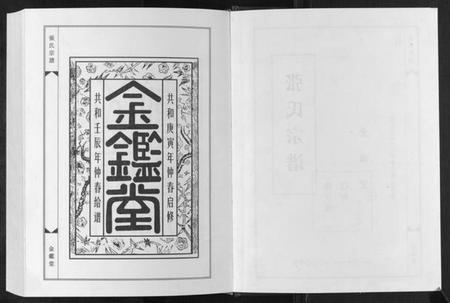 張氏宗譜
共和庚寅年仲春启修
金鑑堂
共和壬辰年仲春给谱
金鑑堂
张氏宗谱